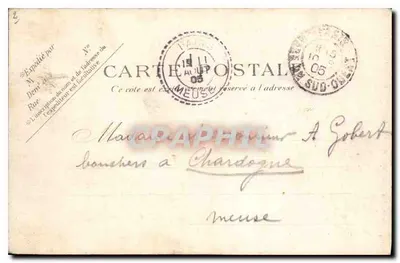 Expédié par
M
Demt
Rue
N°
L'inscription du nom et de l'adresse de
l'expéditeur est facultative
CARTE POSTALE
Ce côté est exclusivement réservé à l'adresse
11
AOUT
05
MEUSE
10
05
SUD-OUEST
Monsieur A Gobert
bouchers à Chardogne
Meuse